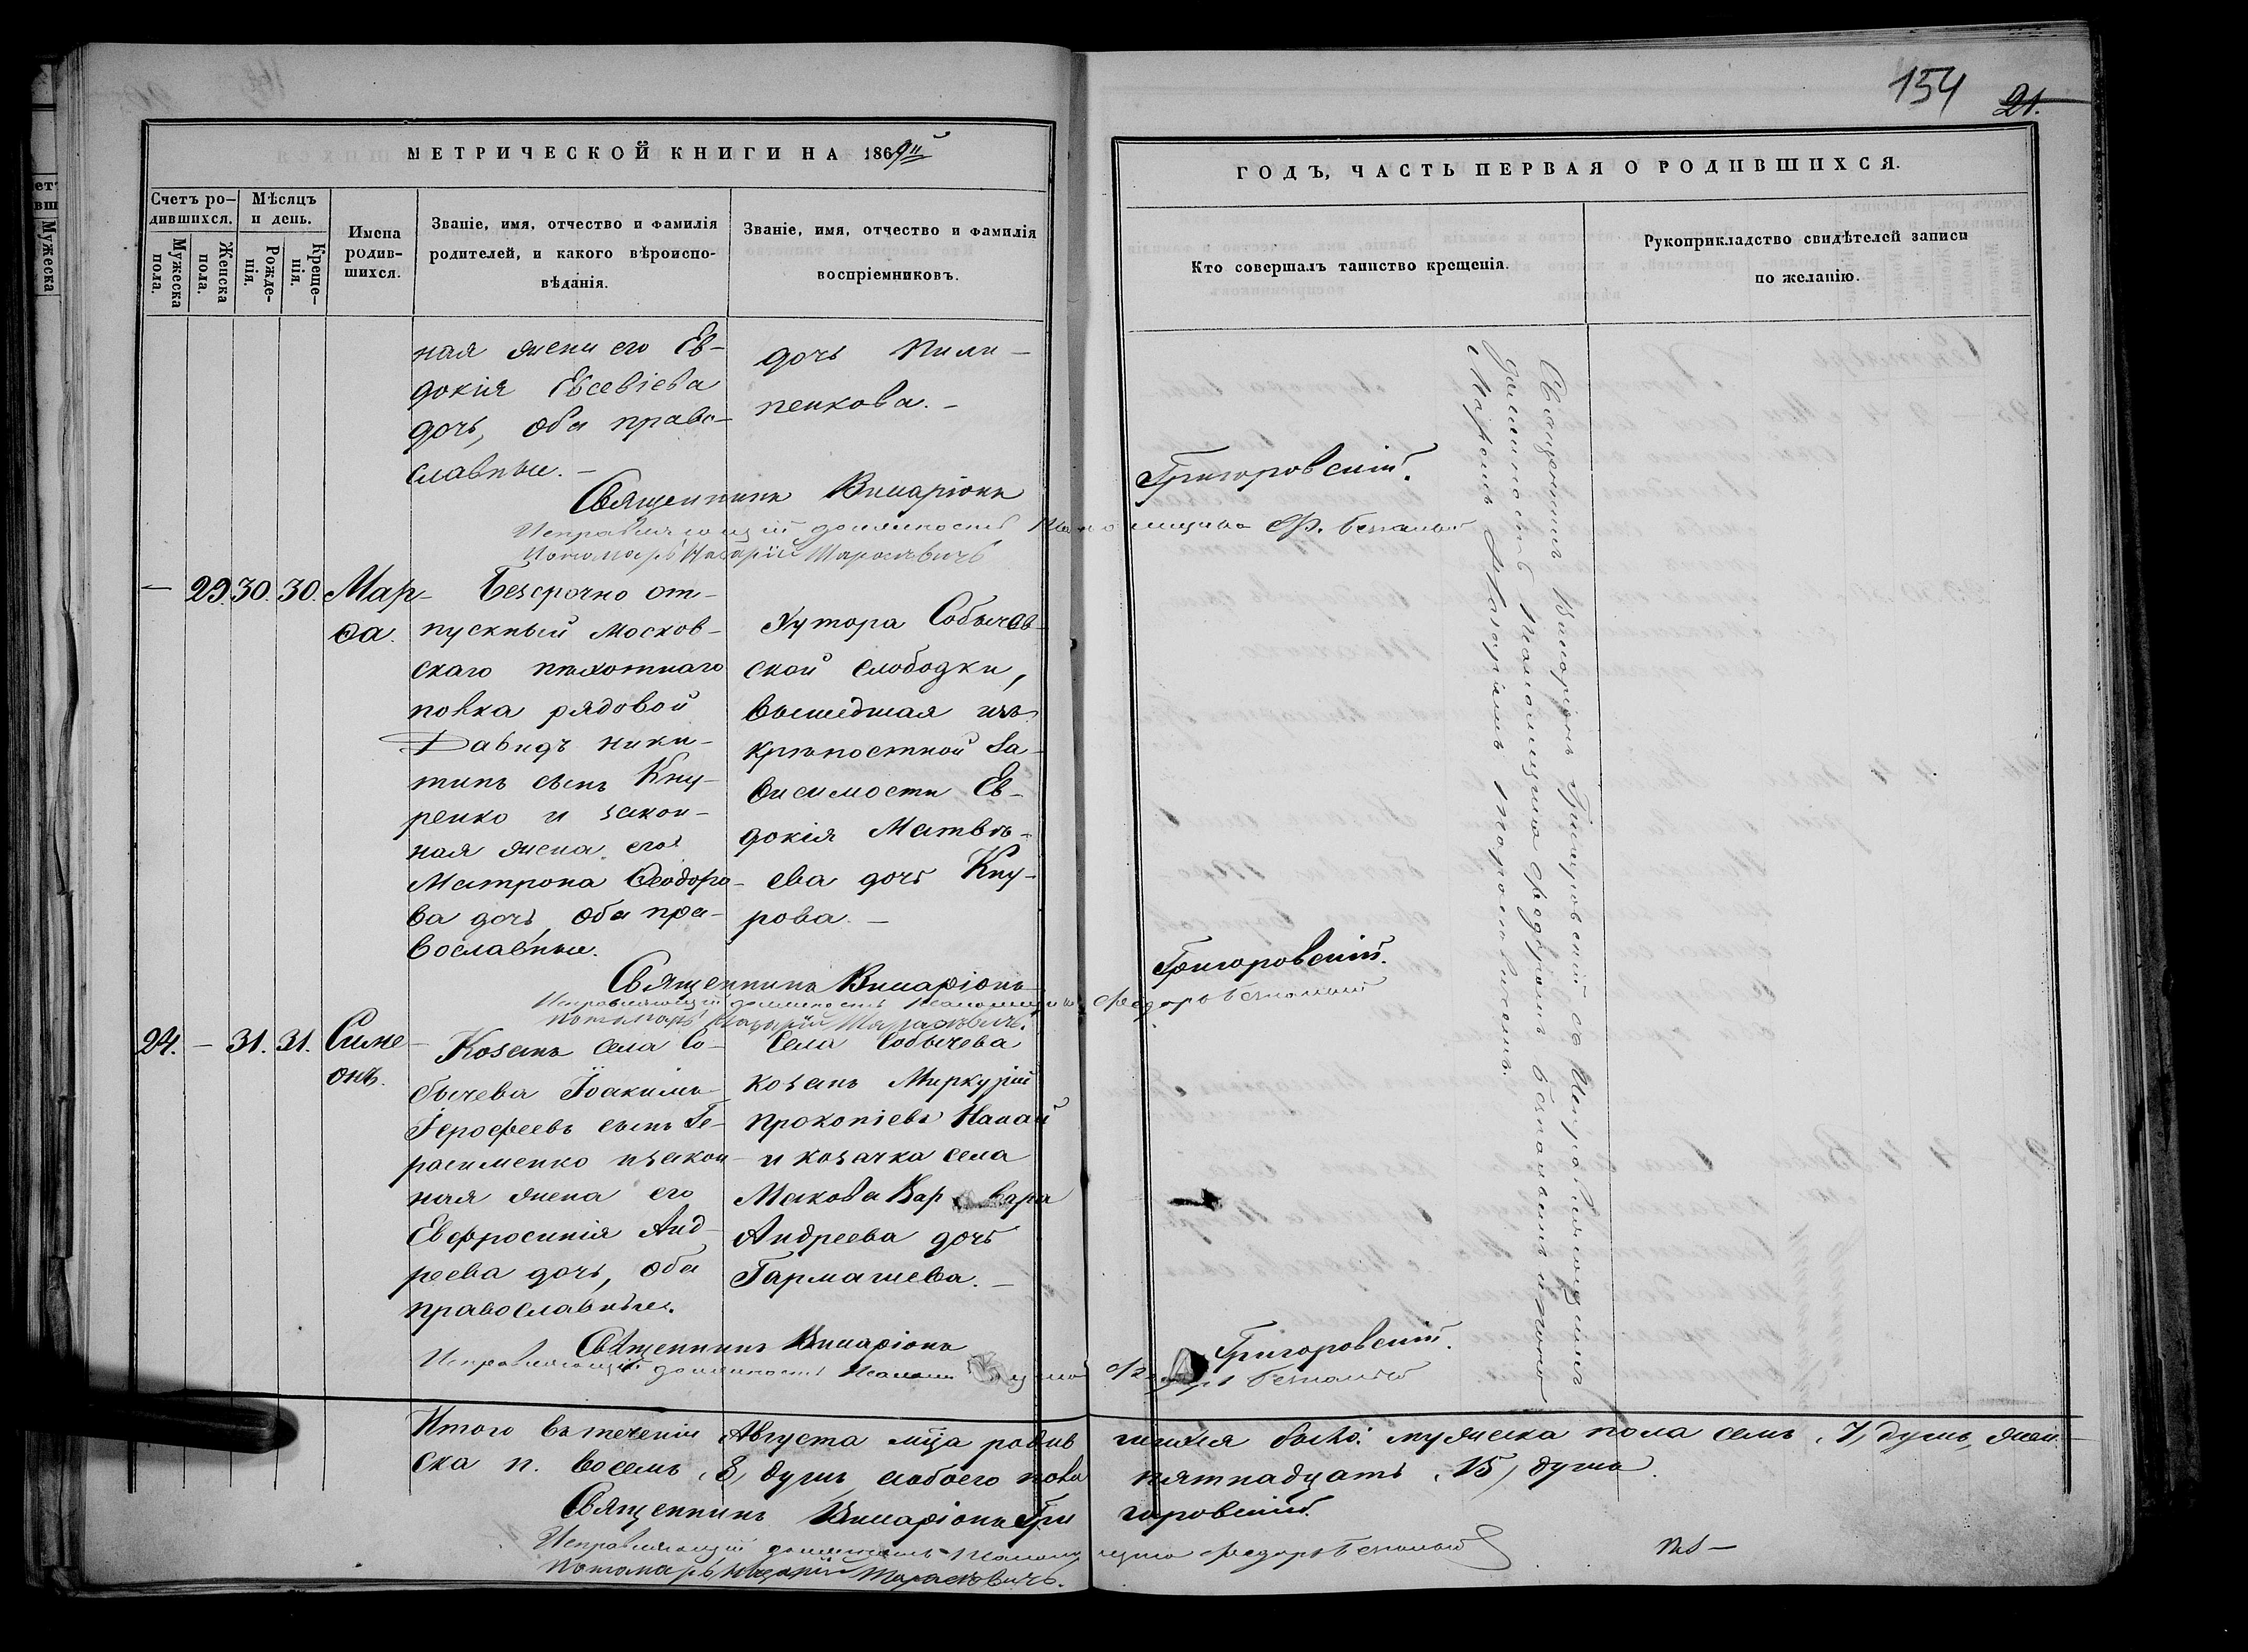 154
21.
МЕТРИЧЕСКОЙ КНИГИ НА 1869й
ГОДЪ, ЧАСТЬ ПЕРВАЯ О РОДИВШИХСЯ.
Счетъ ро-
дившихся.
Мужеска
пола.
Женска
пола.
Мѣсяцъ
и день.
Рожде-
нія.
Креще-
нія.
Имена
родив-
шихся.
Званіе, имя, отчество и фамилія
родителей, и какого вѣроиспо-
вѣданія.
Званіе, имя, отчество и фамилія
воспріемниковъ.
Кто совершалъ таинство крещенія.
Рукоприкладство свидѣтелей записи
по желанію.
ная жена его Ев-
докія Евсевіева
дочь, оба право-
славные.-
дочь Пили-
пенкова.-
Священникъ Викаріонъ Григоровскій.
Исправляющій должность Псаломщика Ф.
Пономарь Назарій Тарасевичъ
- 29. 30. 30. Мар-
ѳа.
Безсрочно от-
пускный Москов-
скаго пѣхотнаго
полка рядовой
Давидъ Ники-
тинъ сынъ Кну-
ренко и закон-
ная жена его
Матрона Ѳеодоро-
ва дочь, оба пра-
вославные.
Хутора Собычев-
ской слободки,
вышедшая изъ
крѣпостной за-
висимости Ев-
докія Матвѣ-
ева дочь Кну-
рова.-
Священникъ Викаріонъ Григоровскій.
Исправляющій должность Псаломщика Федоръ
Пономарь Назарій Тарасевичъ.
24. - 31. 31. Симе-
онъ.
Козакъ села Со-
бычева Іоакимъ
Іерофеевъ сынъ Ге-
расименко и закон-
ная жена его
Евфросинія Анд-
реева дочь, оба
православные.
Села Собычева
козакъ Меркурій
Прокопіевъ Напай
и козачка села
Макова Вар вара
Андреева дочь
Гармашева.-
Священникъ Викаріонъ Григоровскій.
Исправляющій должность Псаломщика Федоръ
Священникъ Викаріонъ Григоровскій съ Исправляющимъ
должность Псаломщика Федоромъ и Поно
Маремъ Назаріемъ Тарасевичемъ.
Итого въ теченіи Августа мца родившихся было: мужеска пола семь, 7, душъ, жен-
ска п. восемь, 8, душъ а обоего пола пятнадцать, 15, душъ.
Священникъ Викаріонъ Григоровскій.
Исправляющій должность Псаломщика Федоръ
Пономарь Назарій Тарасевичъ.